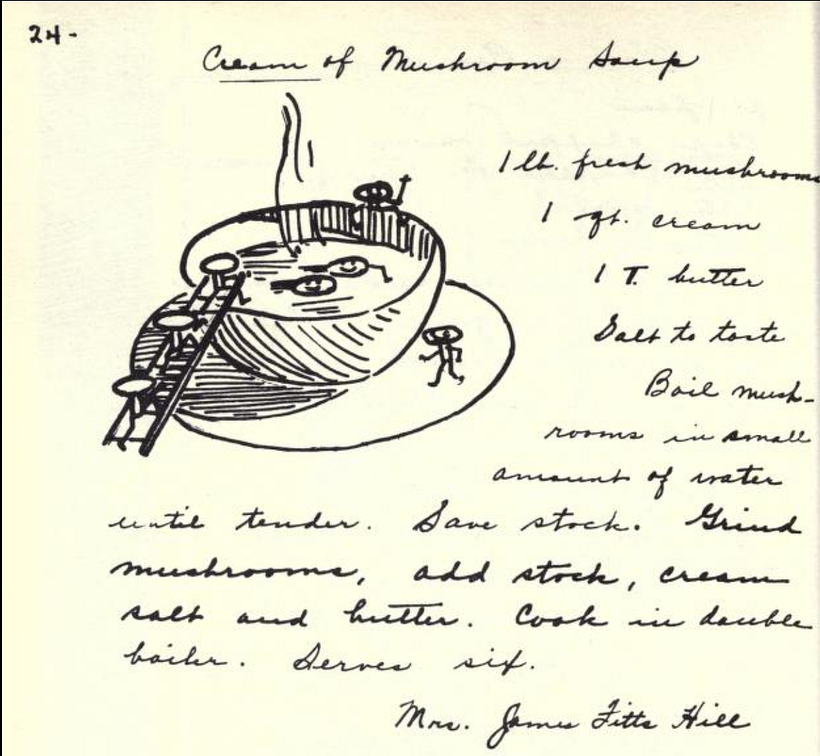 24-
Cream of Mushroom Soup
1 lb. fresh mushrooms
1 qt. cream
1 T. butter
Salt to taste
Boil mush-
rooms in small
amount of water
until tender. Save stock. Grind
mushrooms, add stock, cream
salt and butter. Cook in double
boiler. Serves six.
Mrs. James Fitts Hill